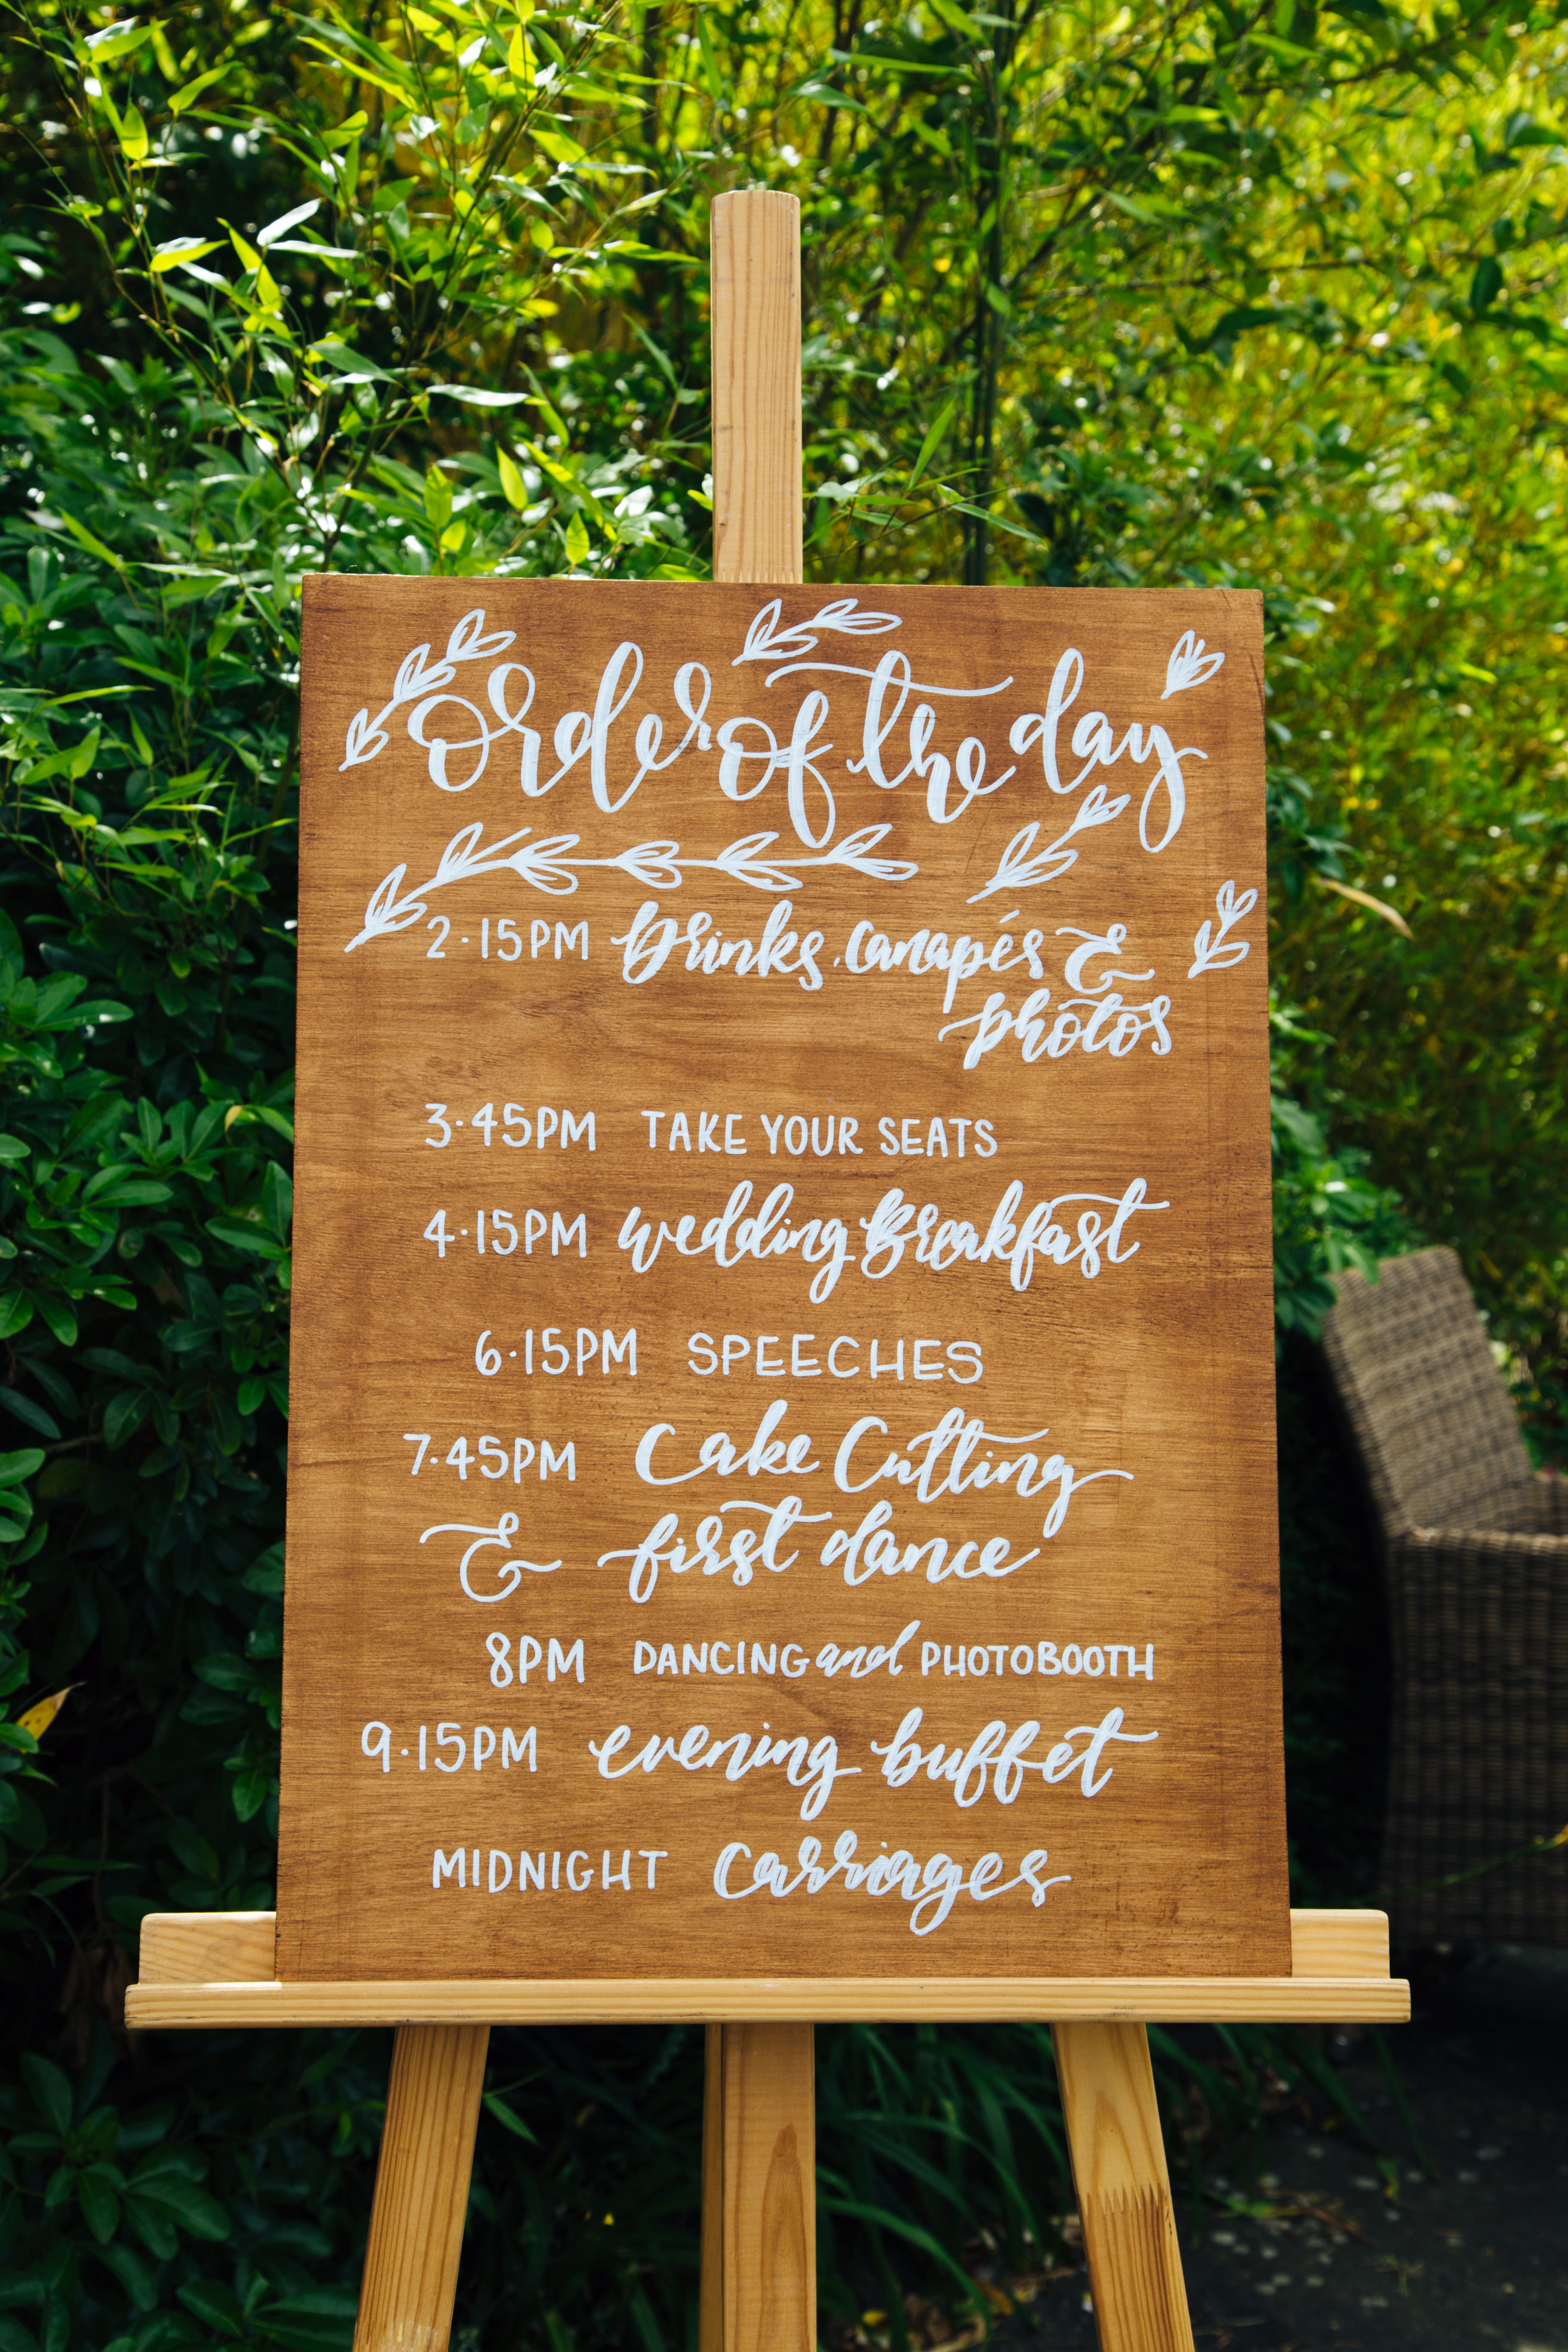 order of the day
2·15PM Drinks, Canapés &
photos
3·45PM TAKE YOUR SEATS
4·15PM wedding Breakfast
6·15PM SPEECHES
7·45PM Cake Cutting
& first dance
8PM DANCING and PHOTOBOOTH
9·15PM evening buffet
MIDNIGHT Carriages